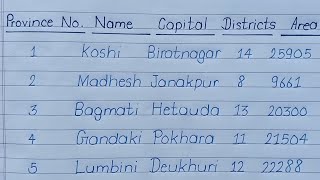 Province No. Name Capital Districts Area
1 Koshi Biratnagar 14 25905
2 Madhesh Janakpur 8 9661
3 Bagmati Hetauda 13 20300
4 Gandaki Pokhara 11 21504
5 Lumbini Deukhuri 12 22288